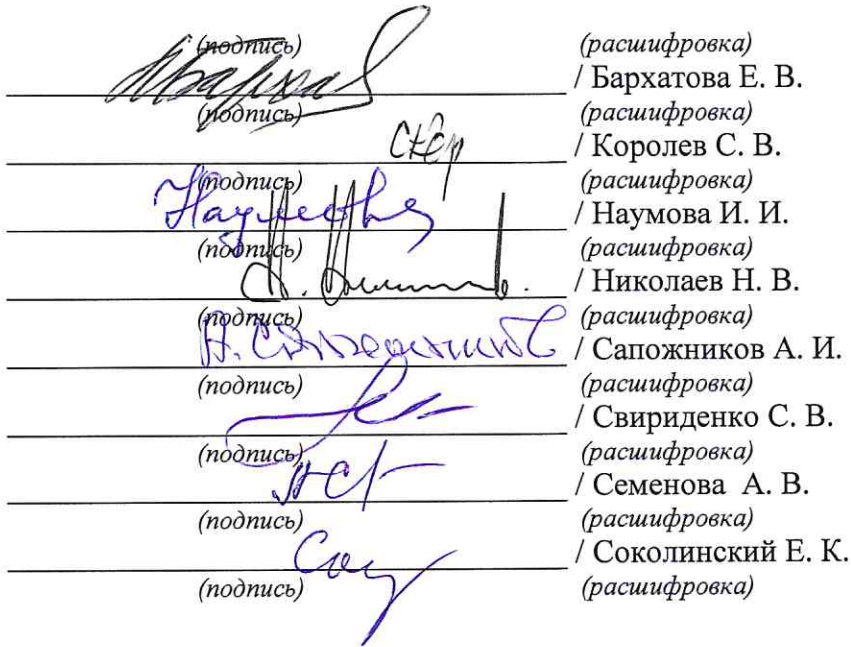 (подпись) (расшифровка)
/ Бархатова Е. В.
(подпись) (расшифровка)
/ Королев С. В.
(подпись) (расшифровка)
/ Наумова И. И.
(подпись) (расшифровка)
/ Николаев Н. В.
(подпись) (расшифровка)
/ Сапожников А. И.
(подпись) (расшифровка)
/ Свириденко С. В.
(подпись) (расшифровка)
/ Семенова А. В.
(подпись) (расшифровка)
/ Соколинский Е. К.
(подпись) (расшифровка)